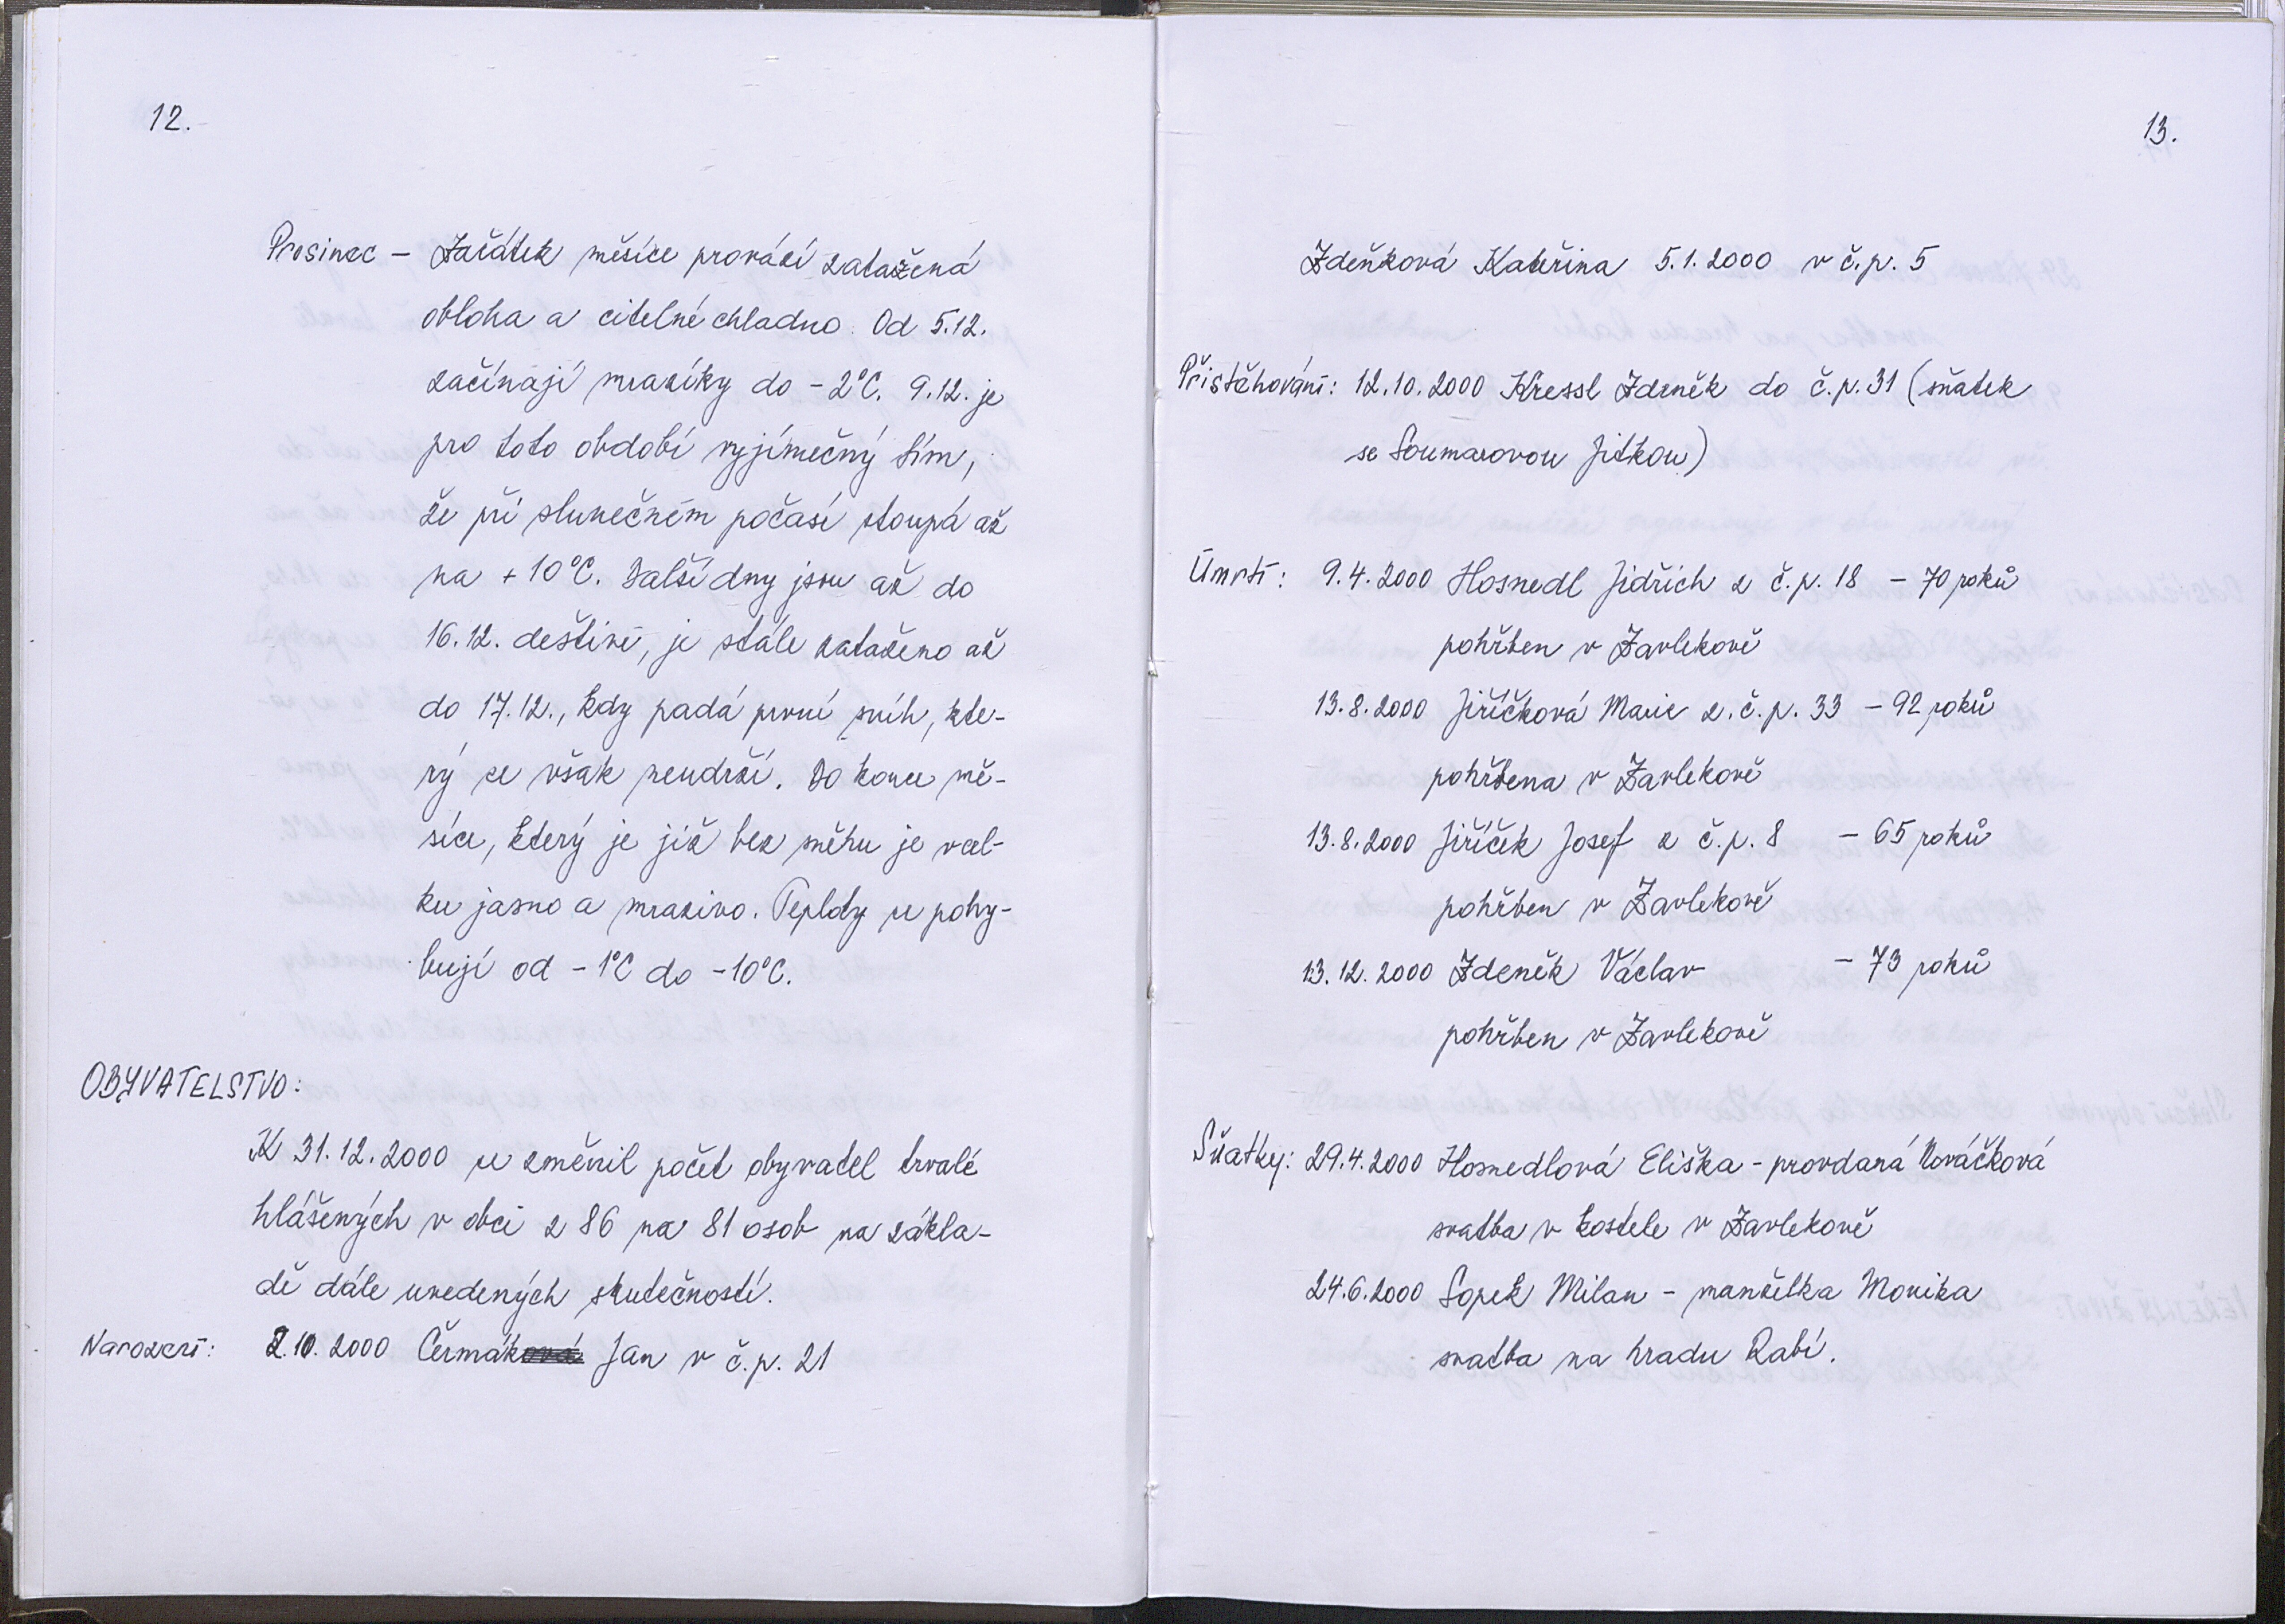 12.
Prosinec – Začátek měsíce provází zatažená
obloha a citelné chladno. Od 5.12.
začínají mrazíky do -2°C. 9.12. je
pro toto období vyjímečný tím,
že při slunečném počasí stoupá až
na +10°C. Další dny jsou až do
16.12. deštivé, je stále zataženo až
do 17.12., kdy padá první sníh, kte-
rý se však neudrží. Do konce mě-
síce, který je již bez sněhu je vcel-
ku jasno a mrazivo. Teploty se pohy-
bují od -1°C do -10°C.
OBYVATELSTVO:
K 31.12.2000 se změnil počet obyvatel trvalé
hlášených v obci z 86 na 81 osob na zákla-
dě dále uvedených skutečností.
Narození: 2.10.2000 Čermáková Jan v č.p. 21
13.
Zdeňková Kateřina 5.1.2000 v č.p. 5
Přistěhování: 12.10.2000 Kressl Zdeněk do č.p. 31 (sňatek
se Soumarovou Jitkou)
Úmrtí: 9.4.2000 Hosnedl Jidřich z č.p. 18 – 70 roků
pohřben v Zavlekově
13.8.2000 Jiříčková Marie z.č.p. 33 – 92 roků
pohřbena v Zavlekově
13.8.2000 Jiříček Josef z č.p. 8 – 65 roků
pohřben v Zavlekově
13.12.2000 Zdeněk Václav – 73 roků
pohřben v Zavlekově
Sňatky: 29.4.2000 Hosnedlová Eliška - provdaná Nováčková
svatba v kostele v Zavlekově
24.6.2000 Sopek Milan - manželka Monika
svatba na hradu Rabí.